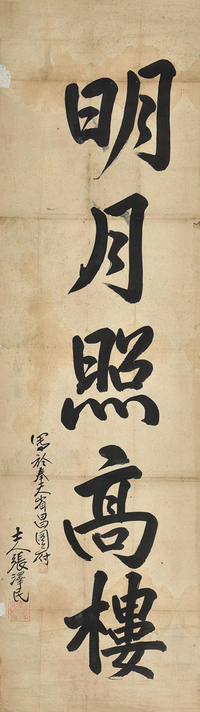 明月照高樓
寫於奉天省昌圖府
士人張澤民